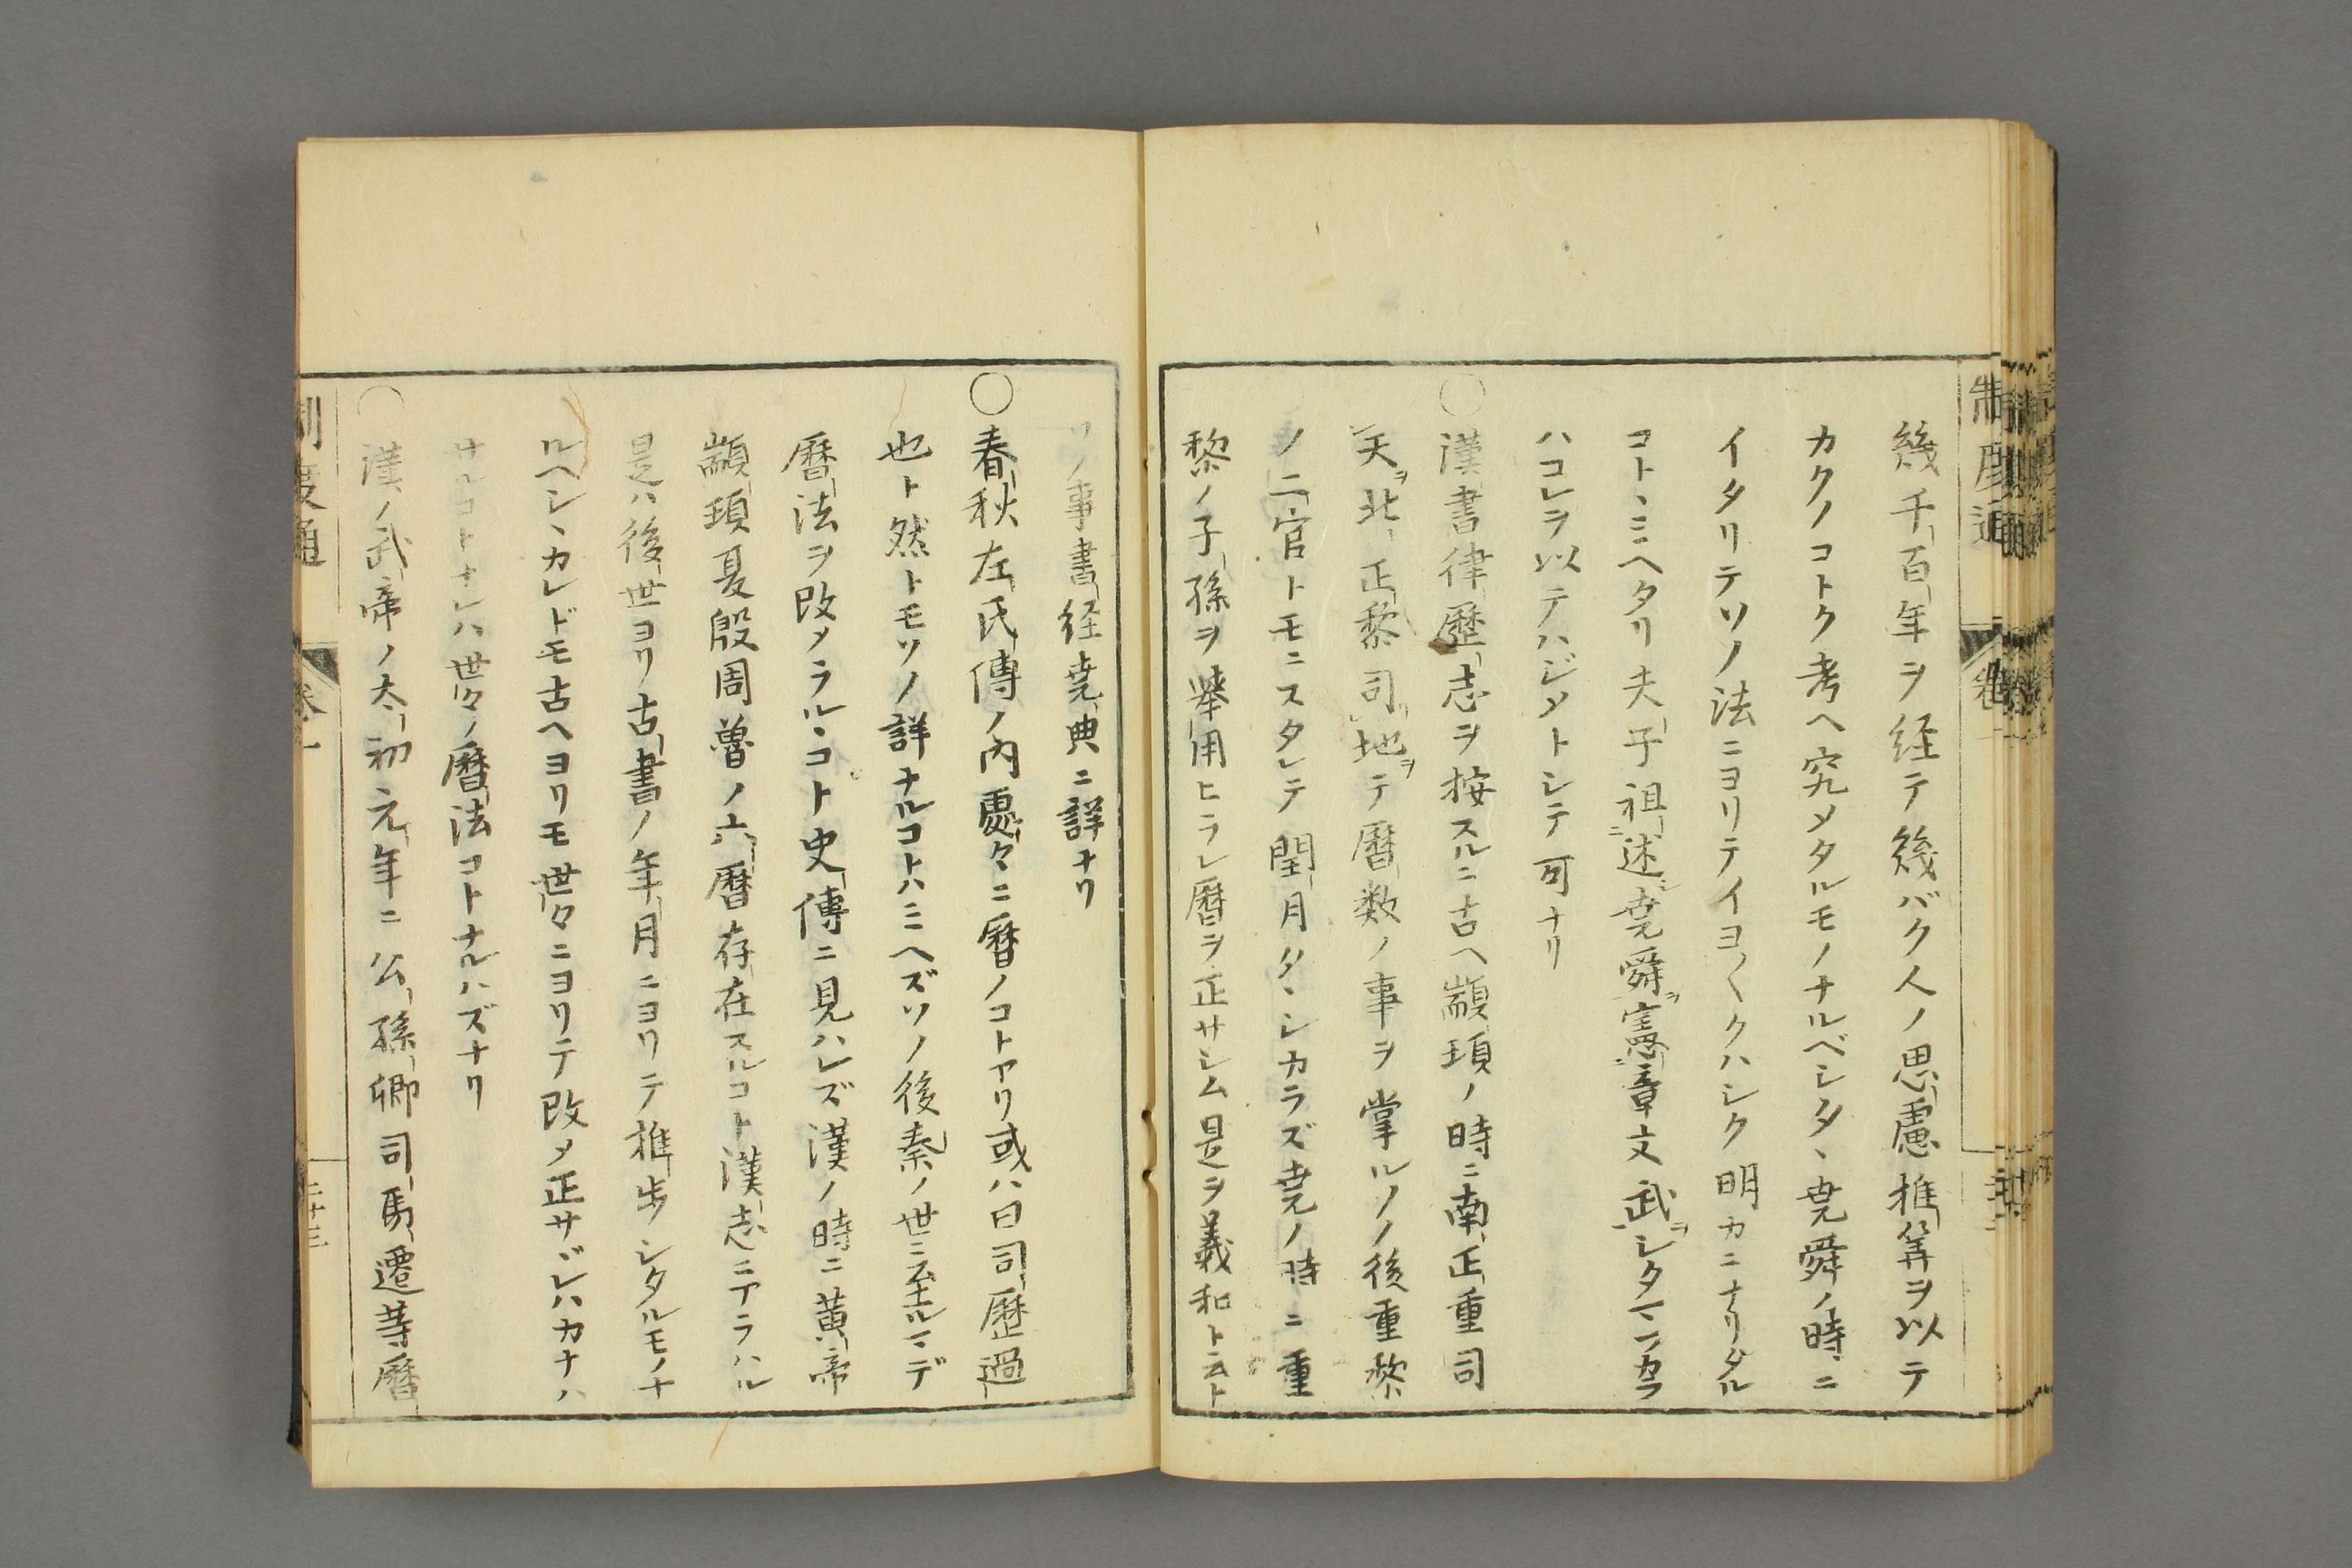 幾千百年ヲ経テ幾バク人ノ思慮推筭ヲ以テ
カクノコトク考ヘ究メタルモノナルベシタヽ尭舜ノ時ニ
イタリテソノ法ニヨリテイヨ〱クハシク明カニナリタル
コトヽミヘタリ夫子祖述尭舜ヲ憲章文武ヲシタマフカラ
ハコレヲ以テハジメトシテ可ナリ
○漢書律歴志ヲ按スルニ古ヘ顓頊ノ時ニ南正重司
天ヲ北正黎司地ヲテ暦数ノ事ヲ掌ルソノ後重黎
ノ二官トモニスタレテ閏月タヽシカラズ尭ノ時ニ重
黎ノ子孫ヲ擧用ヒラレ暦ヲ正サシム是ヲ義和ト云ト
ソノ事書経尭典ニ詳ナリ
○春秋左氏傳ノ内處々ニ暦ノコトアリ或ハ曰司歴過
也ト然トモソノ詳ナルコトハミヘズソノ後秦ノ世ニ至ルマデ
暦法ヲ改メラルヽコト史傳ニ見ハレズ漢ノ時ニ黄帝
顓頊夏殷周魯ノ六暦存在スルコト漢志ニアラハル
是ハ後世ヨリ古書ノ年月ニヨリテ推歩シタルモノナ
ルヘシヽカレドモ古ヘヨリモ世々ニヨリテ改メ正サヾレハカナハ
サルコトナレハ世々ノ暦法コトナルハズナリ
○漢ノ武帝ノ太初元年ニ公孫卿司馬遷等暦
制度通
巻一
二十三